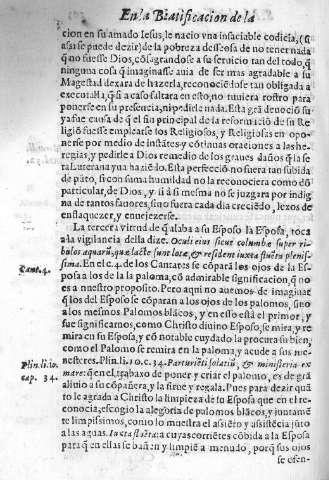 En la Beatificacion de la
cion en su amado Iesus, le nacio vna insaciable codicia, (si
assi se puede dezir) de la pobreza desseosa de no tener nada
q̃ no fuesse Dios, cõsagrandose a su seruicio tan del todo, q̃
ninguna cosa q̃ imaginasse auia de ser mas agradable a su
Magestad dexara de hazerla, reconociẽdose tan obligada a
executalla, q̃ si a caso faltara en esto, no tuuiera rostro para
ponerse en su presencia, ni pedirle nada. Esta grã deuoció su
ya fue causa de q̃ el fin principal de la reformació de su Re
ligiõ fuesse emplearse los Religiosos, y Religiosas en opo-
nerse por medio de instãtes y cõtinuas oraciones a las he-
regias, y pedirle a Dios remedio de los graues daños q̃ la se
ta Luterana yua haziẽdo. Esta perfecciõ no fuera tan subida
de pũto, si con suma humildad no la reconociera como dõ
particular, de Dios, y si a si mesma no se juzgara por indig
na de tantos fauores, sino fuera cada dia creciẽdo, lexos de
enflaquezer, y enuejezerse.
La tercera virtud de q̃ alaba a su Esposo la Esposa, toca
a la vigilancia della dize. Oculi eius sicut columbæ super ri-
bulos aquarũ, quæ lacte sunt lotæ, & resident iuxta fluẽta plenis-
sima.
Cant. 4.
En el c. 4. de los Cantares se cõpará los ojos de la Es
posa a los de la paloma, cõ admirable significacion, q̃ no
es a nuestro proposito. Pero aqui no auemos de imaginar
q̃ los del Esposo se cõparan a los ojos de los palomos, sino
a los mesmos Palomos blãcos, y en esto está el primor, y
fue significarnos, como Christo diuino Esposo, se mira, y re
mira en su Esposa, y cõ notable cuydado la procura su bien,
como el Palomo se remira en la paloma, y acude a sus me-
nesteres.
Plin. li. 10.
cap. 34.
Plin. li. 10. c. 34. Parturiẽti solatia, & ministeria ex
mare: que en el trabajo de poner y criar el palomo, es de grã
aliuio a su cõpañera, y la sirue y regala. Pues para dezir quã
to le agrada a Christo la limpieza de su Esposa que en el re-
conocia, escogio la alegoria de palomos blãcos, y juntamẽ
te limpissimos, como lo muestra el assiẽto y assistẽcia jũto
a las aguas. Iuxta fluẽta: a cuyas corriẽtes cõbida a la Esposa
para q̃ en ellas se bañen y limpiẽ a menudo, porq̃ sus ojos
se ofen-